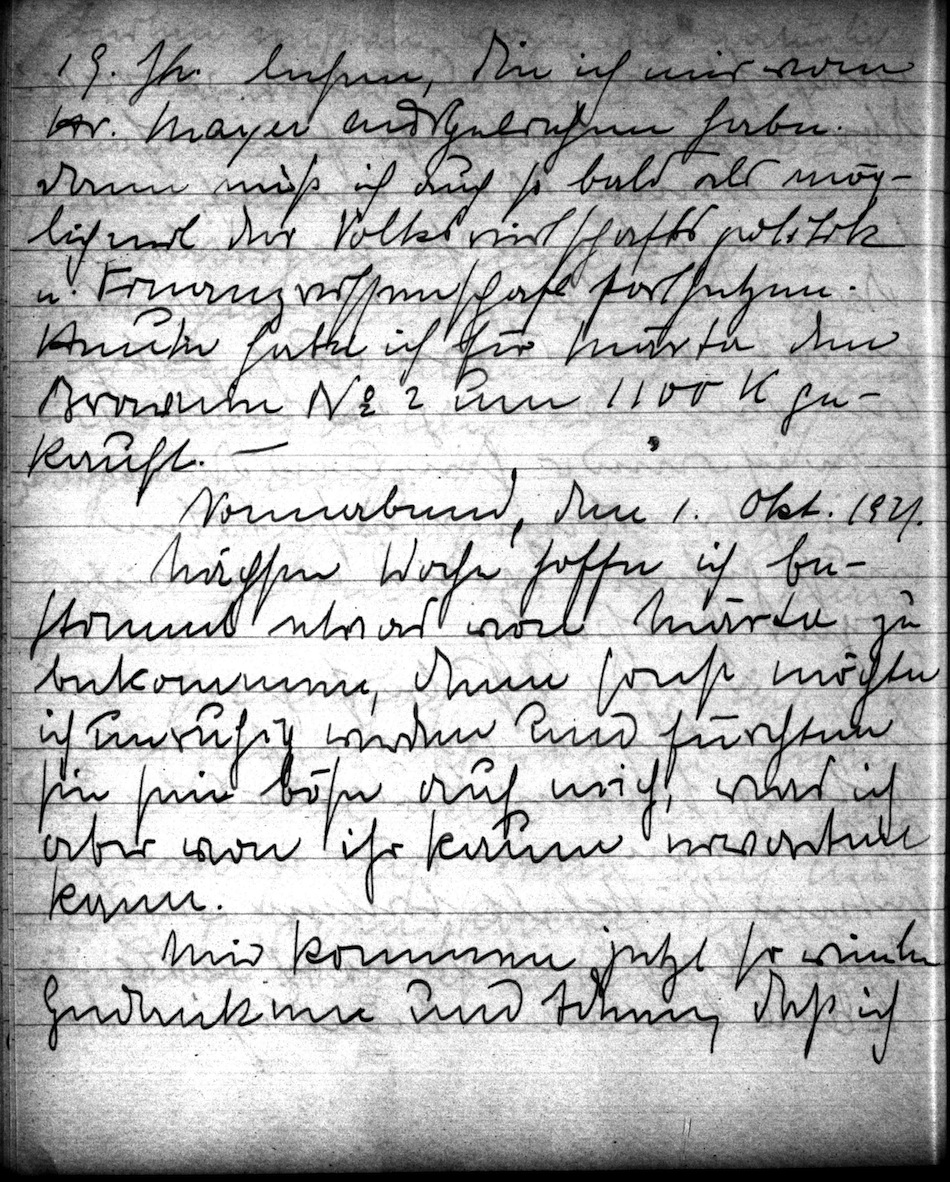 19. Jh. lesen, die ich mir vom
Hr. Mayer ausgeliehen habe.
Dann muß ich auch so bald als mög-
lich mit der Volkswirtschaftspolitik
u. Finanzwissenschaft fortsetzen.
Heute habe ich für Märta den
Brownie № 2 um 1100 K ge-
kauft. —
Sonnabend, den 1. Okt. 1921.
Nächste Woche hoffe ich be-
stimmt etwas von Märta zu
bekommen, denn sonst möchte
ich unruhig werden und fürchten
sie sei böse auf mich, was ich
aber von ihr kaum erwarten
kann.
Mir kommen jetzt so viele
Gedanken und Ideen, daß ich